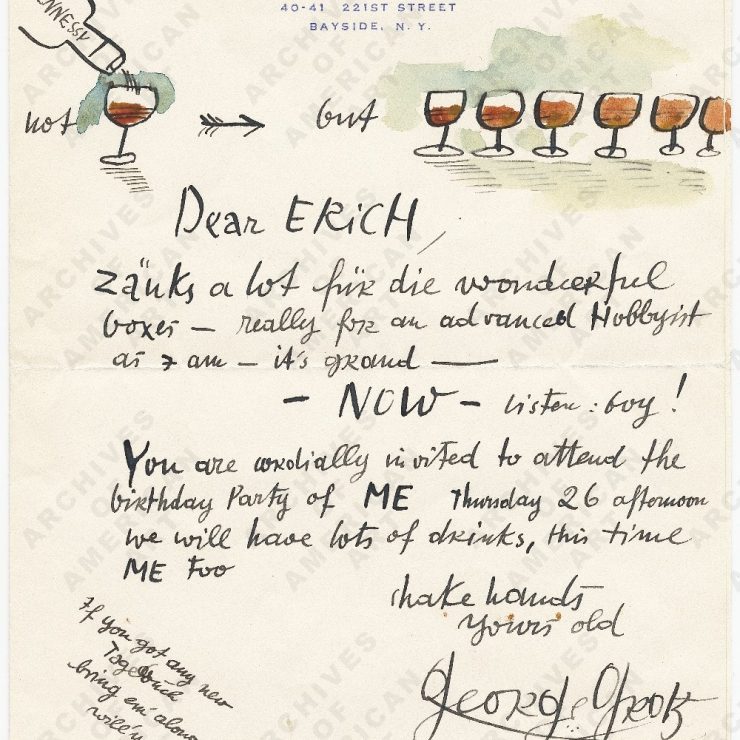 HENNESSY
40-41 221ST STREET
BAYSIDE, N. Y.
not but
Dear ERiCH,
Zänks a lot für die woonderful
boxes – really for an advanced Hobbyist
as I am – it's grand —
– NOW – listen: boy!
You are cordially invited to attend the
birthday Party of ME Thursday 26 afternoon
we will have lots of drinks, this time
ME Too
shake hands
yours old
George Grosz
If you got any new
bring em' along
will'y
ARCHIVES OF AMERICAN ART